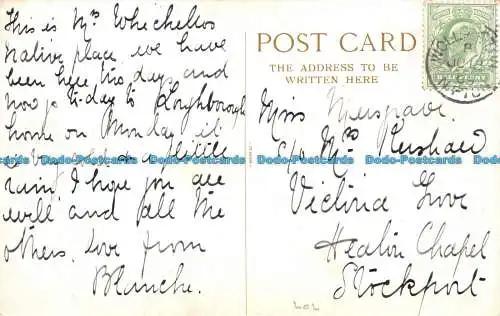 This is Mrs Whichellos
native place, we have
been here two days, and
now to-day to Loughborough
home on Monday, it
little
rain, I hope you are
well and all the
others. Love from
Blanche.
POST CARD
THE ADDRESS TO BE
WRITTEN HERE
Miss Musgrave.
c/o Mrs Kershaw
Victoria Grove
Heaton Chapel
Stockport
HALFPENNY
Dodo-Postcards
Dodo-Postcards
Dodo-Postcards
Dodo-Postcards